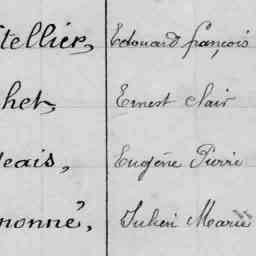 tellier, Edouard françois
het, Ernest clair
eais, Eugène Pierre
nonné, Julien Marie